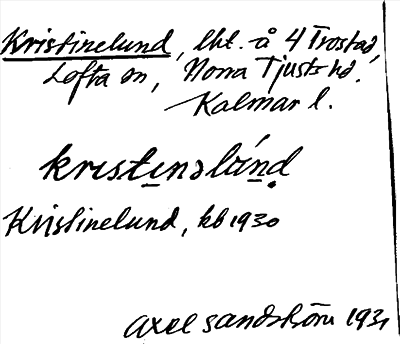 Kristinelund, lht. å 4 Trostad,
Lofta sn, Norra Tjusts hd.
Kalmar l.
kristinəlúnd
Kristinelund, kb 1930
Axel Sandström 1931